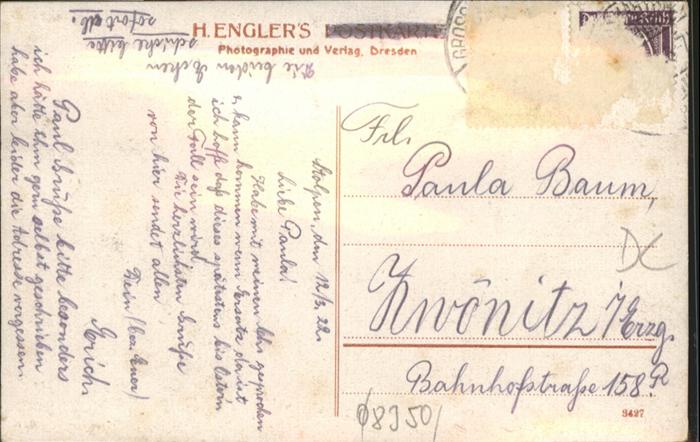 H. ENGLER'S POSTKARTE
Photographie und Verlag, Dresden
GROSS
Frl.
Paula Baum,
Zwönitz i/Erzg.
Bahnhofstraße 158.R
08350
3427
Stolpen, den 12/3. 22.
Liebe Paula!
Habe mit meinem gesprochen
u. kann kommen wenn Ersatz da ist
ich hoffe daß dieses spätestens bis Ostern
der Fall sein wird.
Die herzlichsten Grüße
von hier sendet allen
Dein
Erich.
Paul Grüße bitte besonders
ich hätte ihm gern selbst geschrieben
habe aber leider die Adresse vergessen.
Die beiden
schicke bitte
sofort ab.